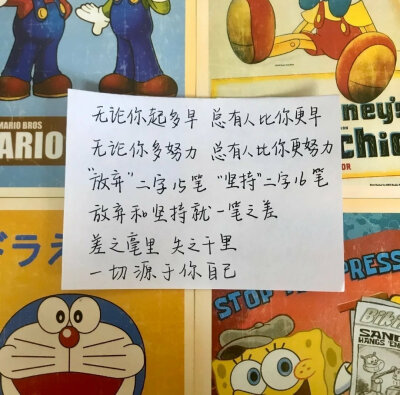 MARIO BROS
ARIO
ney's
chio
无论你起多早 总有人比你更早
无论你多努力 总有人比你更努力
“放弃”二字15笔 “坚持”二字16笔
放弃和坚持就一笔之差
差之毫里 失之千里
一切源于你自己
ドラえ
STOP
PRESS
Biki
SAND
HANGS 'EM